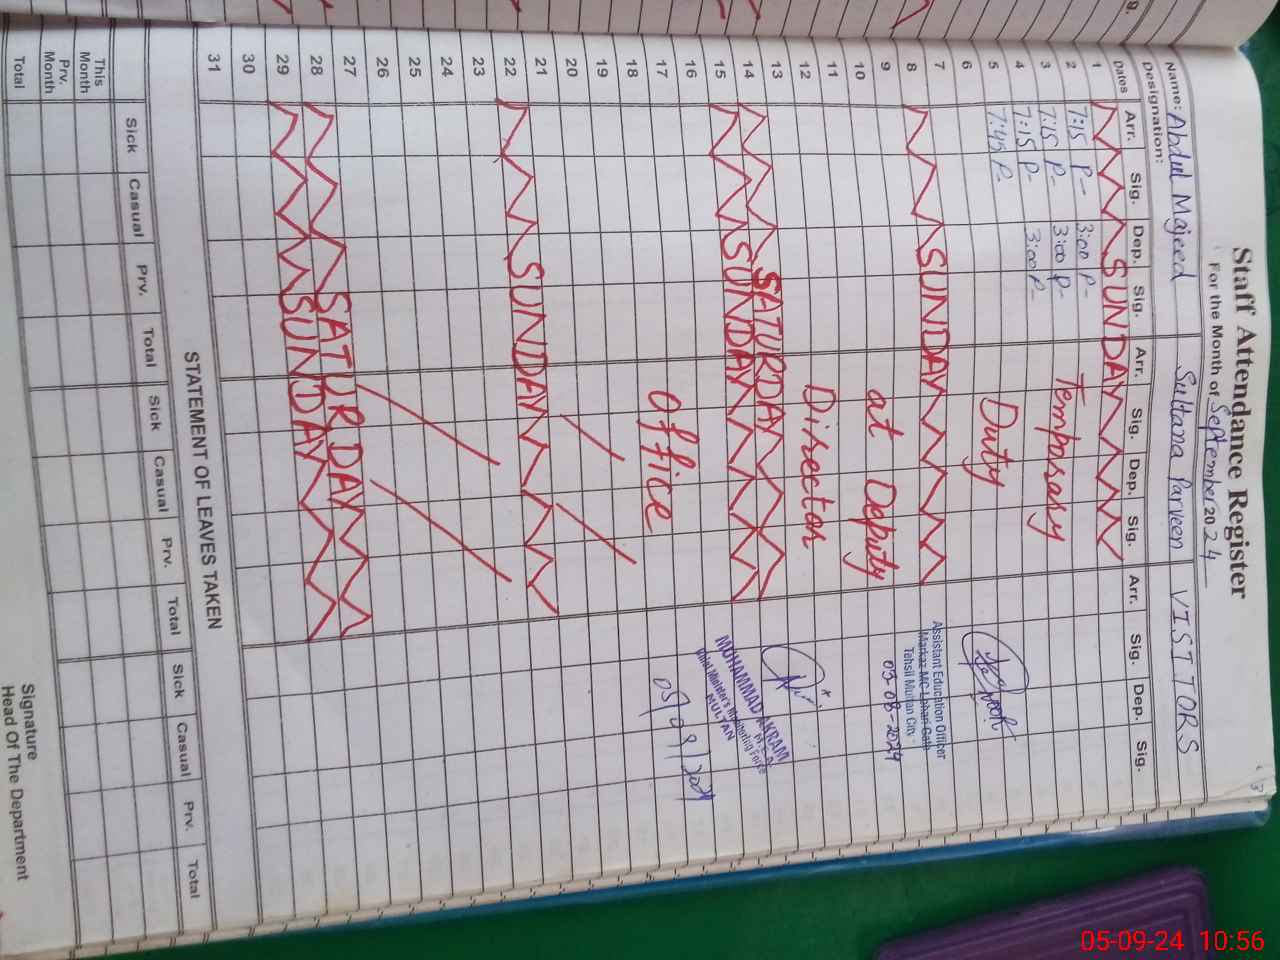 Staff Attendance Register
For the Month of September 2024
Name: Abdul Majeed Sultana Parveen VISITTORS
Designation:
Dates Arr. Sig. Dep. Sig. Arr. Sig. Dep. Sig. Arr. Sig. Dep. Sig.
1 SUNDAY
2 7:15 P- 3:00 P-
3 7:15 P- 3:00 P-
4 7:15 P- 3:00 P-
5 7:45 P-
6
7
8 SUNDAY
9
10
11
12
13
14 SATURDAY
15 SUNDAY
16
17
18
19
20
21
22 SUNDAY
23
24
25
26
27
28 SATURDAY
29 SUNDAY
30
31
Temporary
Duty
at Deputy
Director
Office
Assistant Education Officer
Markaz MC Lohari Gate
Tehsil Multan City
03-08-2024
MUHAMMAD AKRAM
M.E.A
Chief Minister's Monitoring Force
MULTAN
05/09/2024
STATEMENT OF LEAVES TAKEN
Sick Casual Prv. Total Sick Casual Prv. Total Sick Casual Prv. Total
This Month
Prv. Month
Total
Signature
Head Of The Department
05-09-24 10:56